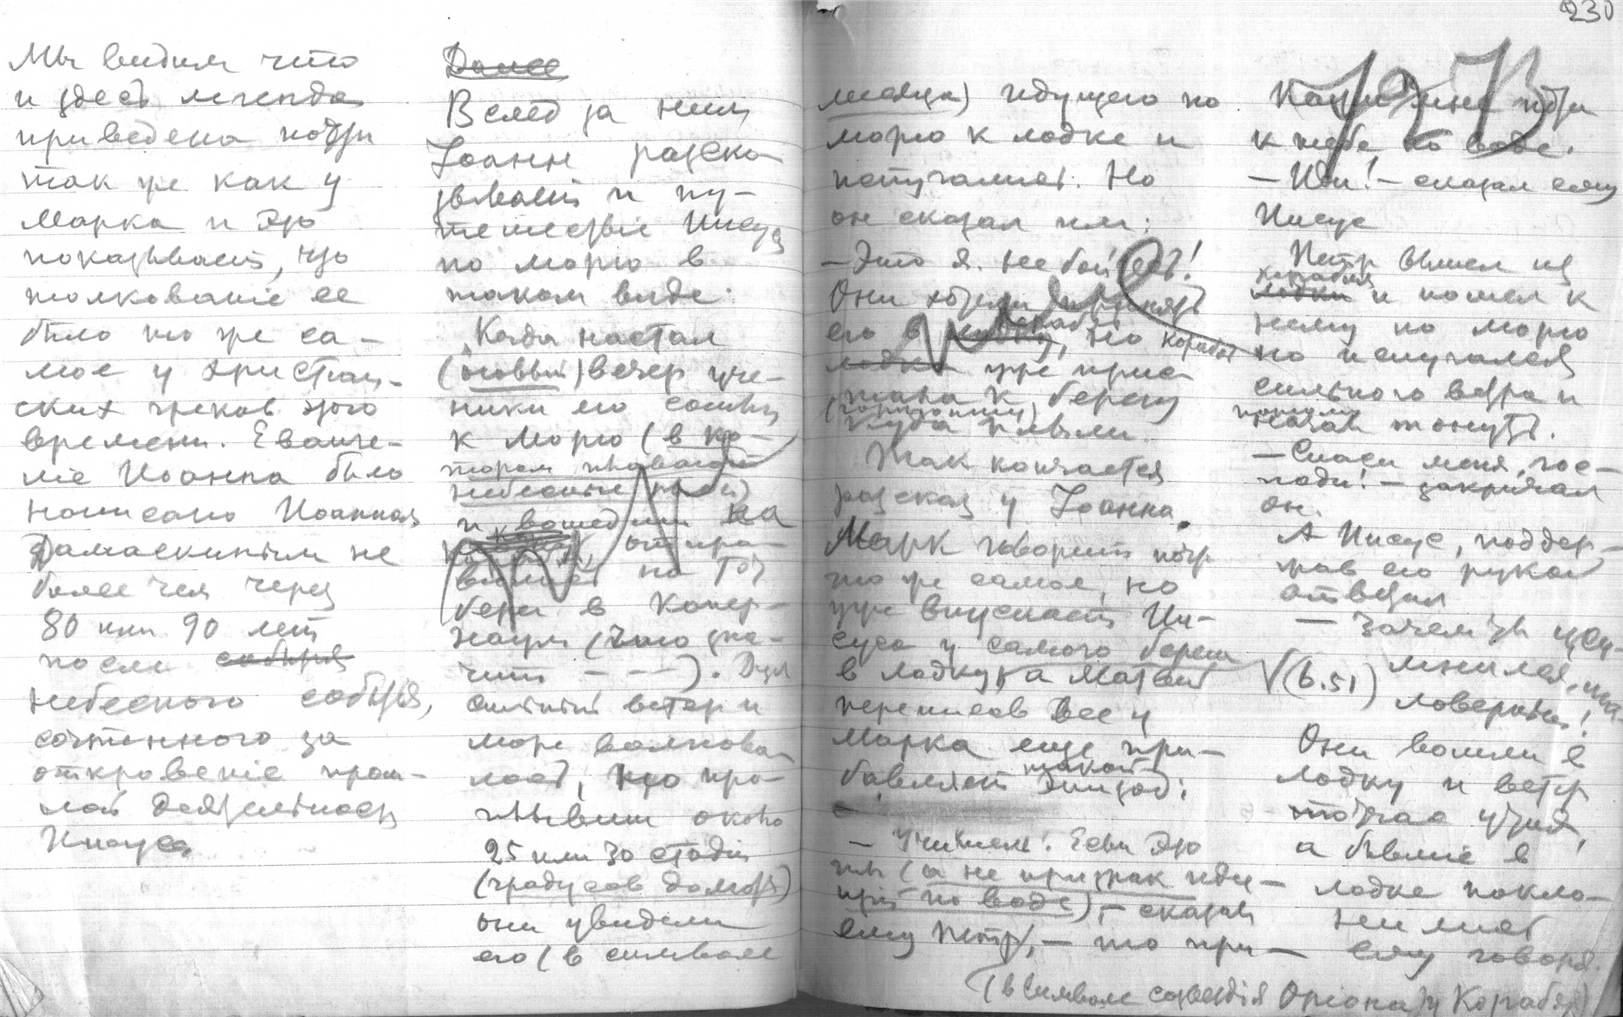 230
Мы видим что
и здесь легенда
приведена почти
так же как у
Марка и это
показывает, что
толкование ее
было то же са-
мое у христиан-
ских греков этого
времени. Еванге-
ліе Иоанна было
написано Иоанном
Дамаскиным не
более чем через
80 или 90 лет
после событія
небеснаго событія,
сочтенного за
откровеніе прош-
лой деятельности
Иисуса
Далее
Вслед за ним
Іоанн разска-
зывает и пу-
тешествіе Иисуса
по морю в
таком виде:
Когда настал
(новый) вечер уче-
ники его сошли
к морю (в ко-
тором плавают
небесные рыбы)
и вошедши на
отпра-
вились на тот
берег в Копер-
наум (что зна-
чит – – –). Дул
сильный ветер и
море волнова-
лось, но про-
плывши около
25 или 30 стадий
(градусов долготы)
они увидели
его (в символе
месяца) идущего по
морю к лодке и
испугались. Но
он сказал им:
– Это я. Не бойтесь!
Они хотели принять
его в корабль, но корабль
лодка уже прис-
тала к берегу
(горизонту)
куда плыли.
Так кончается
разсказ у Іоанна.
Марк говорит почти
то же самое, но
уже впускает Ии-
суса у самого берега
в лодку, а Матвей
переписав все у
Марка еще при-
бавляет такой эпизод:
– Учитель! Если это
ты (а не призрак иду-
щий по воде), – сказал
ему Петр, – то при-
кажи мне придти
к тебе по воде.
– Иди! – сказал ему
Иисус
Петр вышел из
корабля
лодки и пошел к
нему по морю
но испугался
сильного ветра и
начал тонуть.
– Спаси меня, гос-
поди! – закричал
он.
А Иисус, поддер-
жав его рукой
отвечал
– Зачем ты усу-
мнился, мало-
√(6.51) ловерный!
Они вошли в
лодку и ветер
тотчас утих,
а бывшие в
лодке покло-
нились
ему говоря.
(в символе созвездія Оріона) у Корабля)